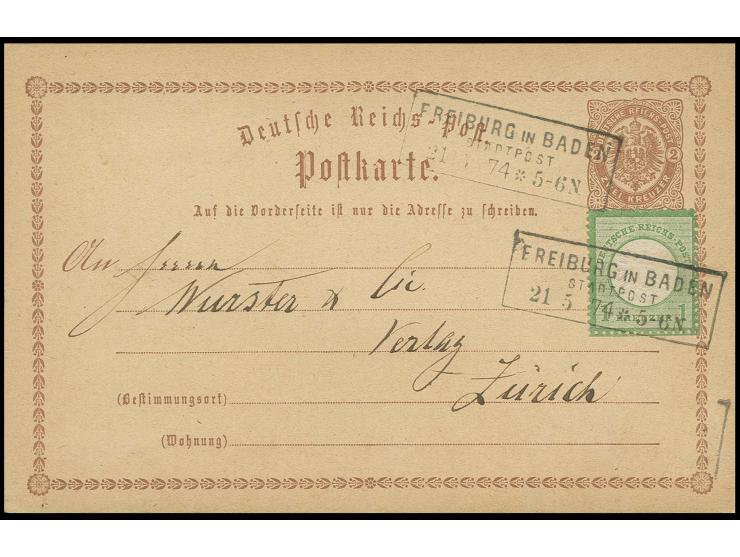 Deutsche Reichs-Post
Postkarte.
Auf die Vorderseite ist nur die Adresse zu schreiben.
DEUTSCHE REICHS-POST
2 2
ZWEI KREUZER
FREIBURG IN BADEN
STADTPOST
21 5 74 * 5-6N
DEUTSCHE REICHS-POST
1 KREUZER 1
FREIBURG IN BADEN
STADTPOST
21 5 74 * 5-6N
An Herren
Wurster & Cie.
Verlag
Zürich
(Bestimmungsort)
(Wohnung)